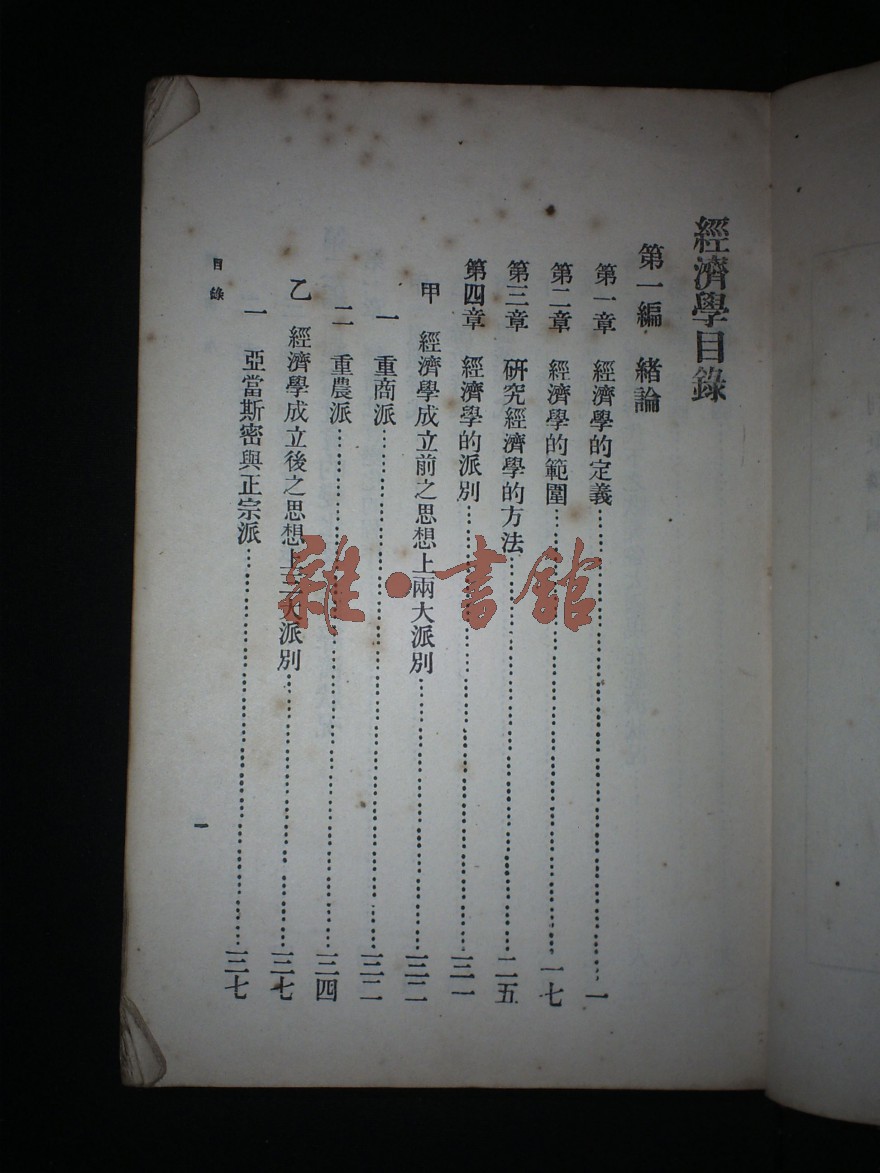 經濟學目錄
第一編　緒論
第一章　經濟學的定義……………………一
第二章　經濟學的範圍……………………一七
第三章　研究經濟學的方法……………………二五
第四章　經濟學的派別……………………三一
甲　經濟學成立前之思想上兩大派別……………………三二
一　重商派……………………三二
二　重農派……………………三四
乙　經濟學成立後之思想上三大派別……………………三七
一　亞當斯密與正宗派……………………三七
目錄
一
雜·書館